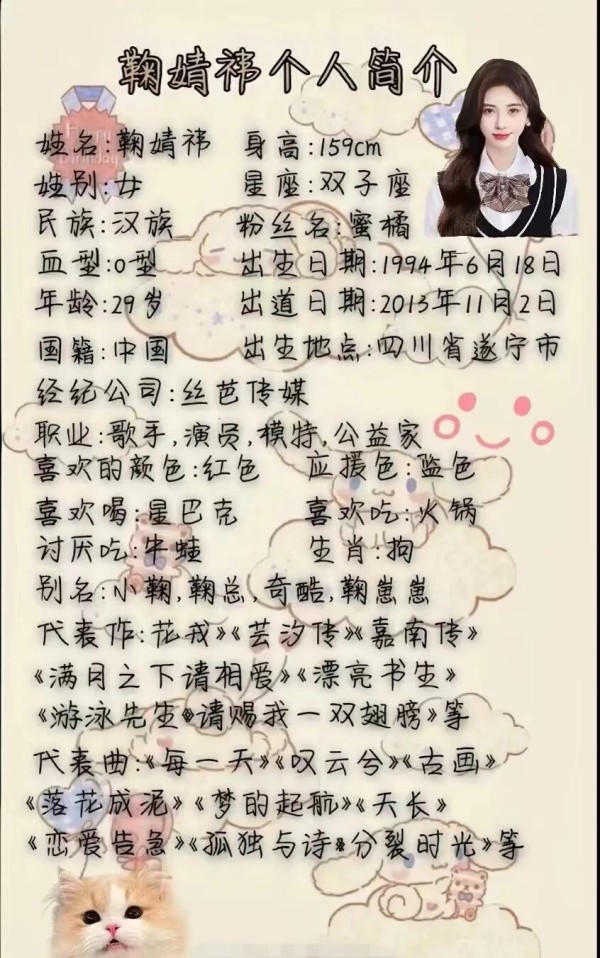 鞠婧祎个人简介
姓名:鞠婧祎 身高:159cm
姓别:女 星座:双子座
民族:汉族 粉丝名:蜜橘
血型:O型 出生日期:1994年6月18日
年龄:29岁 出道日期:2013年11月2日
国籍:中国 出生地点:四川省遂宁市
经纪公司:丝芭传媒
职业:歌手,演员,模特,公益家
喜欢的颜色:红色 应援色:蓝色
喜欢喝:星巴克 喜欢吃:火锅
讨厌吃:牛蛙 生肖:狗
别名:小鞠,鞠总,奇酷,鞠崽崽
代表作:花戎》《芸汐传》《嘉南传》
《满月之下请相爱》《漂亮书生》
《游泳先生》《请赐我一双翅膀》等
代表曲:《每一天》《叹云兮》《古画》
《落花成泥》《梦的起航》《天长》
《恋爱告急》《孤独与诗》《分裂时光》等